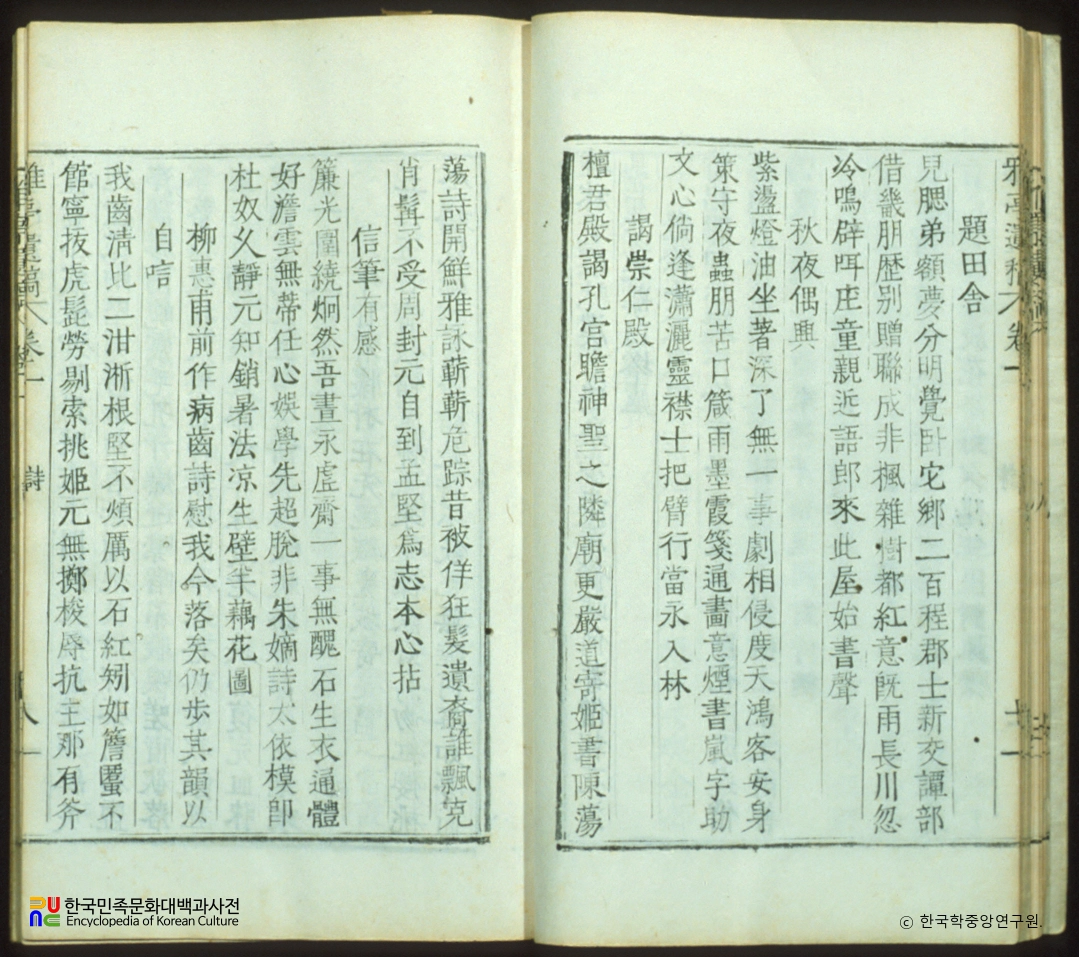 雅亭遺稿 卷一
題田舍
兒腮弟額夢分明覺卧它鄉二百程郡士新交譚部
借畿朋歷别贈聯成非楓雜樹都紅意旣雨長川忽
冷鳴辟咡庄童親近語郎來此屋始書聲
秋夜偶興
紫盪燈油坐著深了無一事劇相侵度天鴻客安身
策守夜蟲朋苦口箴雨墨霞箋通畫意煙書嵐字助
文心倘逢瀟灑靈襟士把臂行當永入林
謁崇仁殿
檀君殿謁孔宮瞻神聖之隣廟更嚴道寄姬書陳蕩
蕩詩開鮮雅詠蘄蘄危踪昔被佯狂髮遺裔誰飄克
肖髯不受周封元自到孟堅爲志本心拈
信筆有感
簾光圍繞炯然吾晝永虛齋一事無醜石生衣通體
好澹雲無蔕任心娛學先超脫非朱嫡詩太依模卽
杜奴乆靜元知銷暑法凉生壁半藕花圖
柳惠甫前作病齒詩慰我今落矣仍步其韻以
自唁
我齒淸比二泔淅根堅不煩厲以石紅矧如簷匿不
館寧拔虎髭勞剔索挑姬元無擲梭辱抗主那有斧
雅亭遺稿 卷一 詩
한국민족문화대백과사전
Encyclopedia of Korean Culture
ⓒ 한국학중앙연구원.